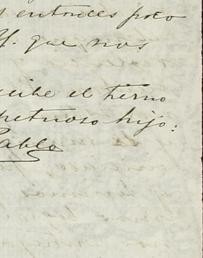 entonces poco
que nos
recibe el tierno
respetuoso hijo:
Pablo